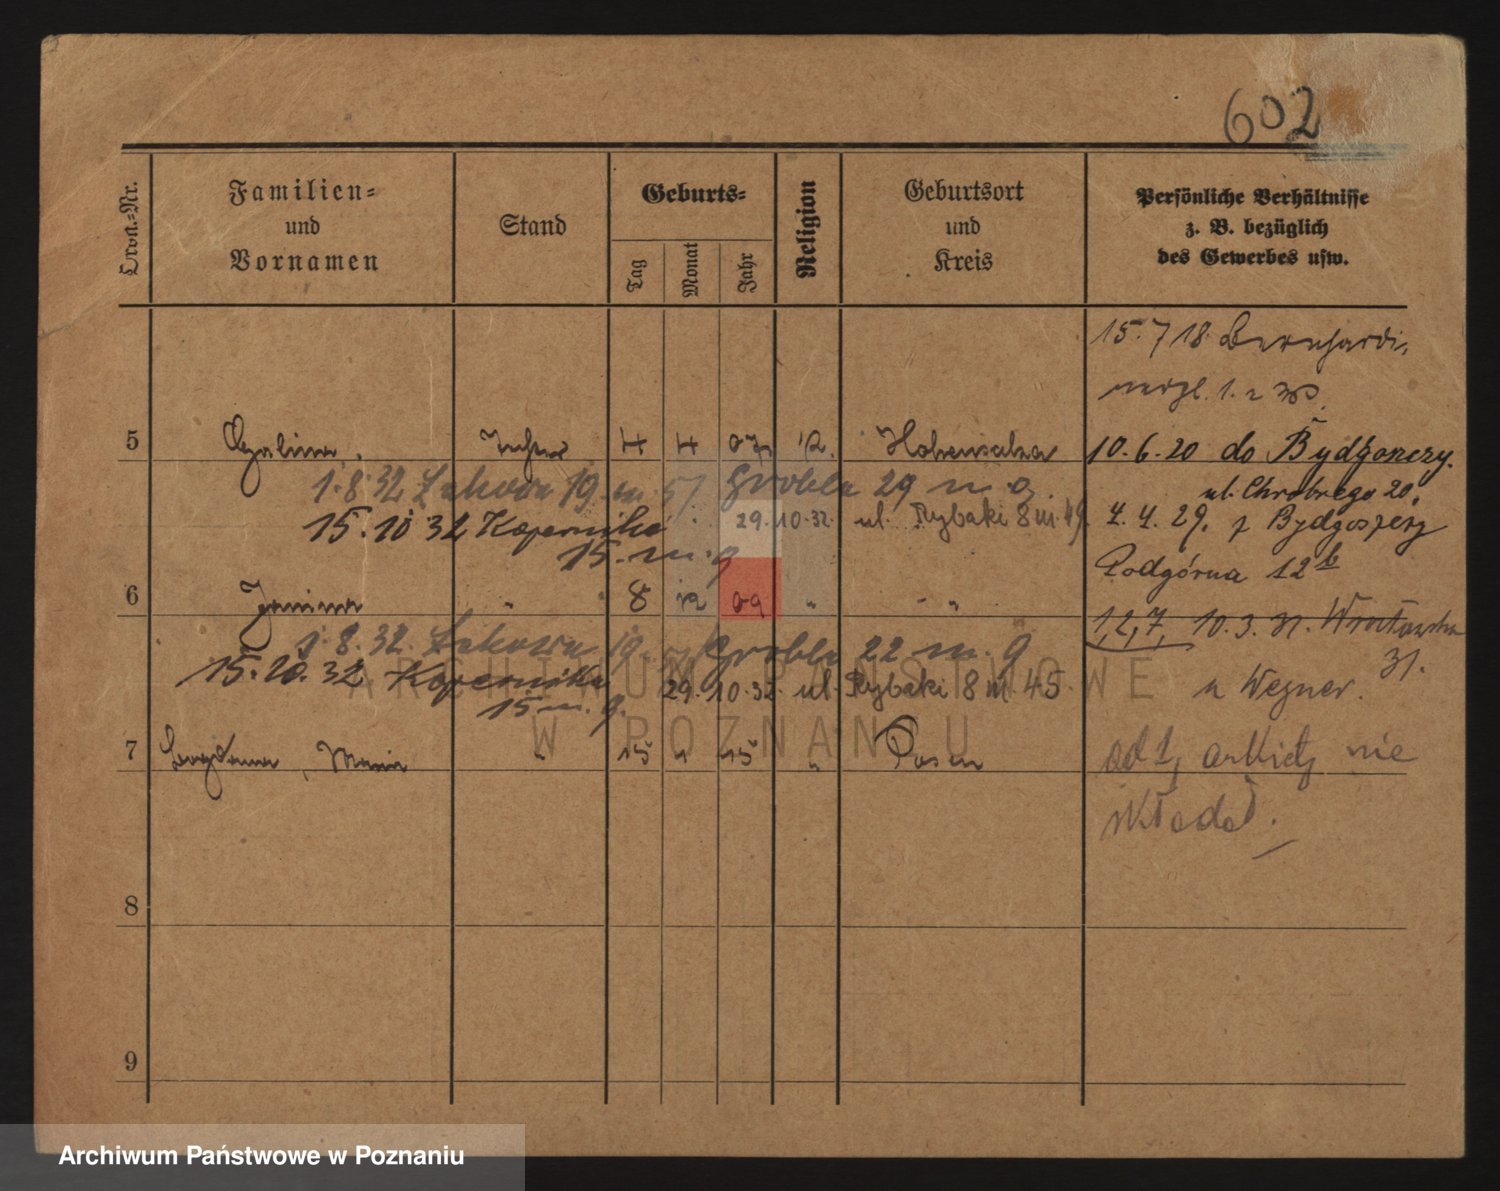 602
Ordn.-Nr.
Familien-
und
Vornamen
Stand
Geburts-
Tag
Monat
Jahr
Religion
Geburtsort
und
Kreis
Persönliche Verhältnisse
z. B. bezüglich
des Gewerbes usw.
15. 7 18 Bernhardi-
5 Halina Tochter 4 4 07 Hohensalza
10. 6. 20 do Bydgoszczy.
ul. Chrobrego 20.
1. 8. 32 Łąkowa 19 m. 57 Grobla 29 m 9.
15. 10 32 Kopernika
15. m. 9
29. 10. 32. ul. Rybaki 8 m. 49
4. 4. 29. z Bydgoszczy
Podgórna 12 b
6 Janina " 8 12 09 " "
1, 2, 7, 10. 3. 31. Wrocławska
31.
1. 8. 32. Łąkowa 19. Grobla 22 m. 9
15. 10. 32 Kopernika
15 m. 9.
29. 10. 32. ul. Rybaki 8 m. 45
u Wegner.
7 Bogdana, Maria " 15 " 15 " Posen
od 1, ankiety nie
składał.
8
9
ARCHIWUM PAŃSTWOWE
W POZNANIU
Archiwum Państwowe w Poznaniu